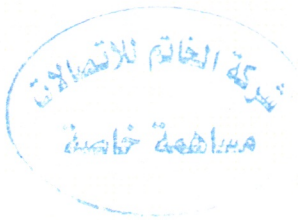 شركة الخاتم للاتصالات
مساهمة خاصة